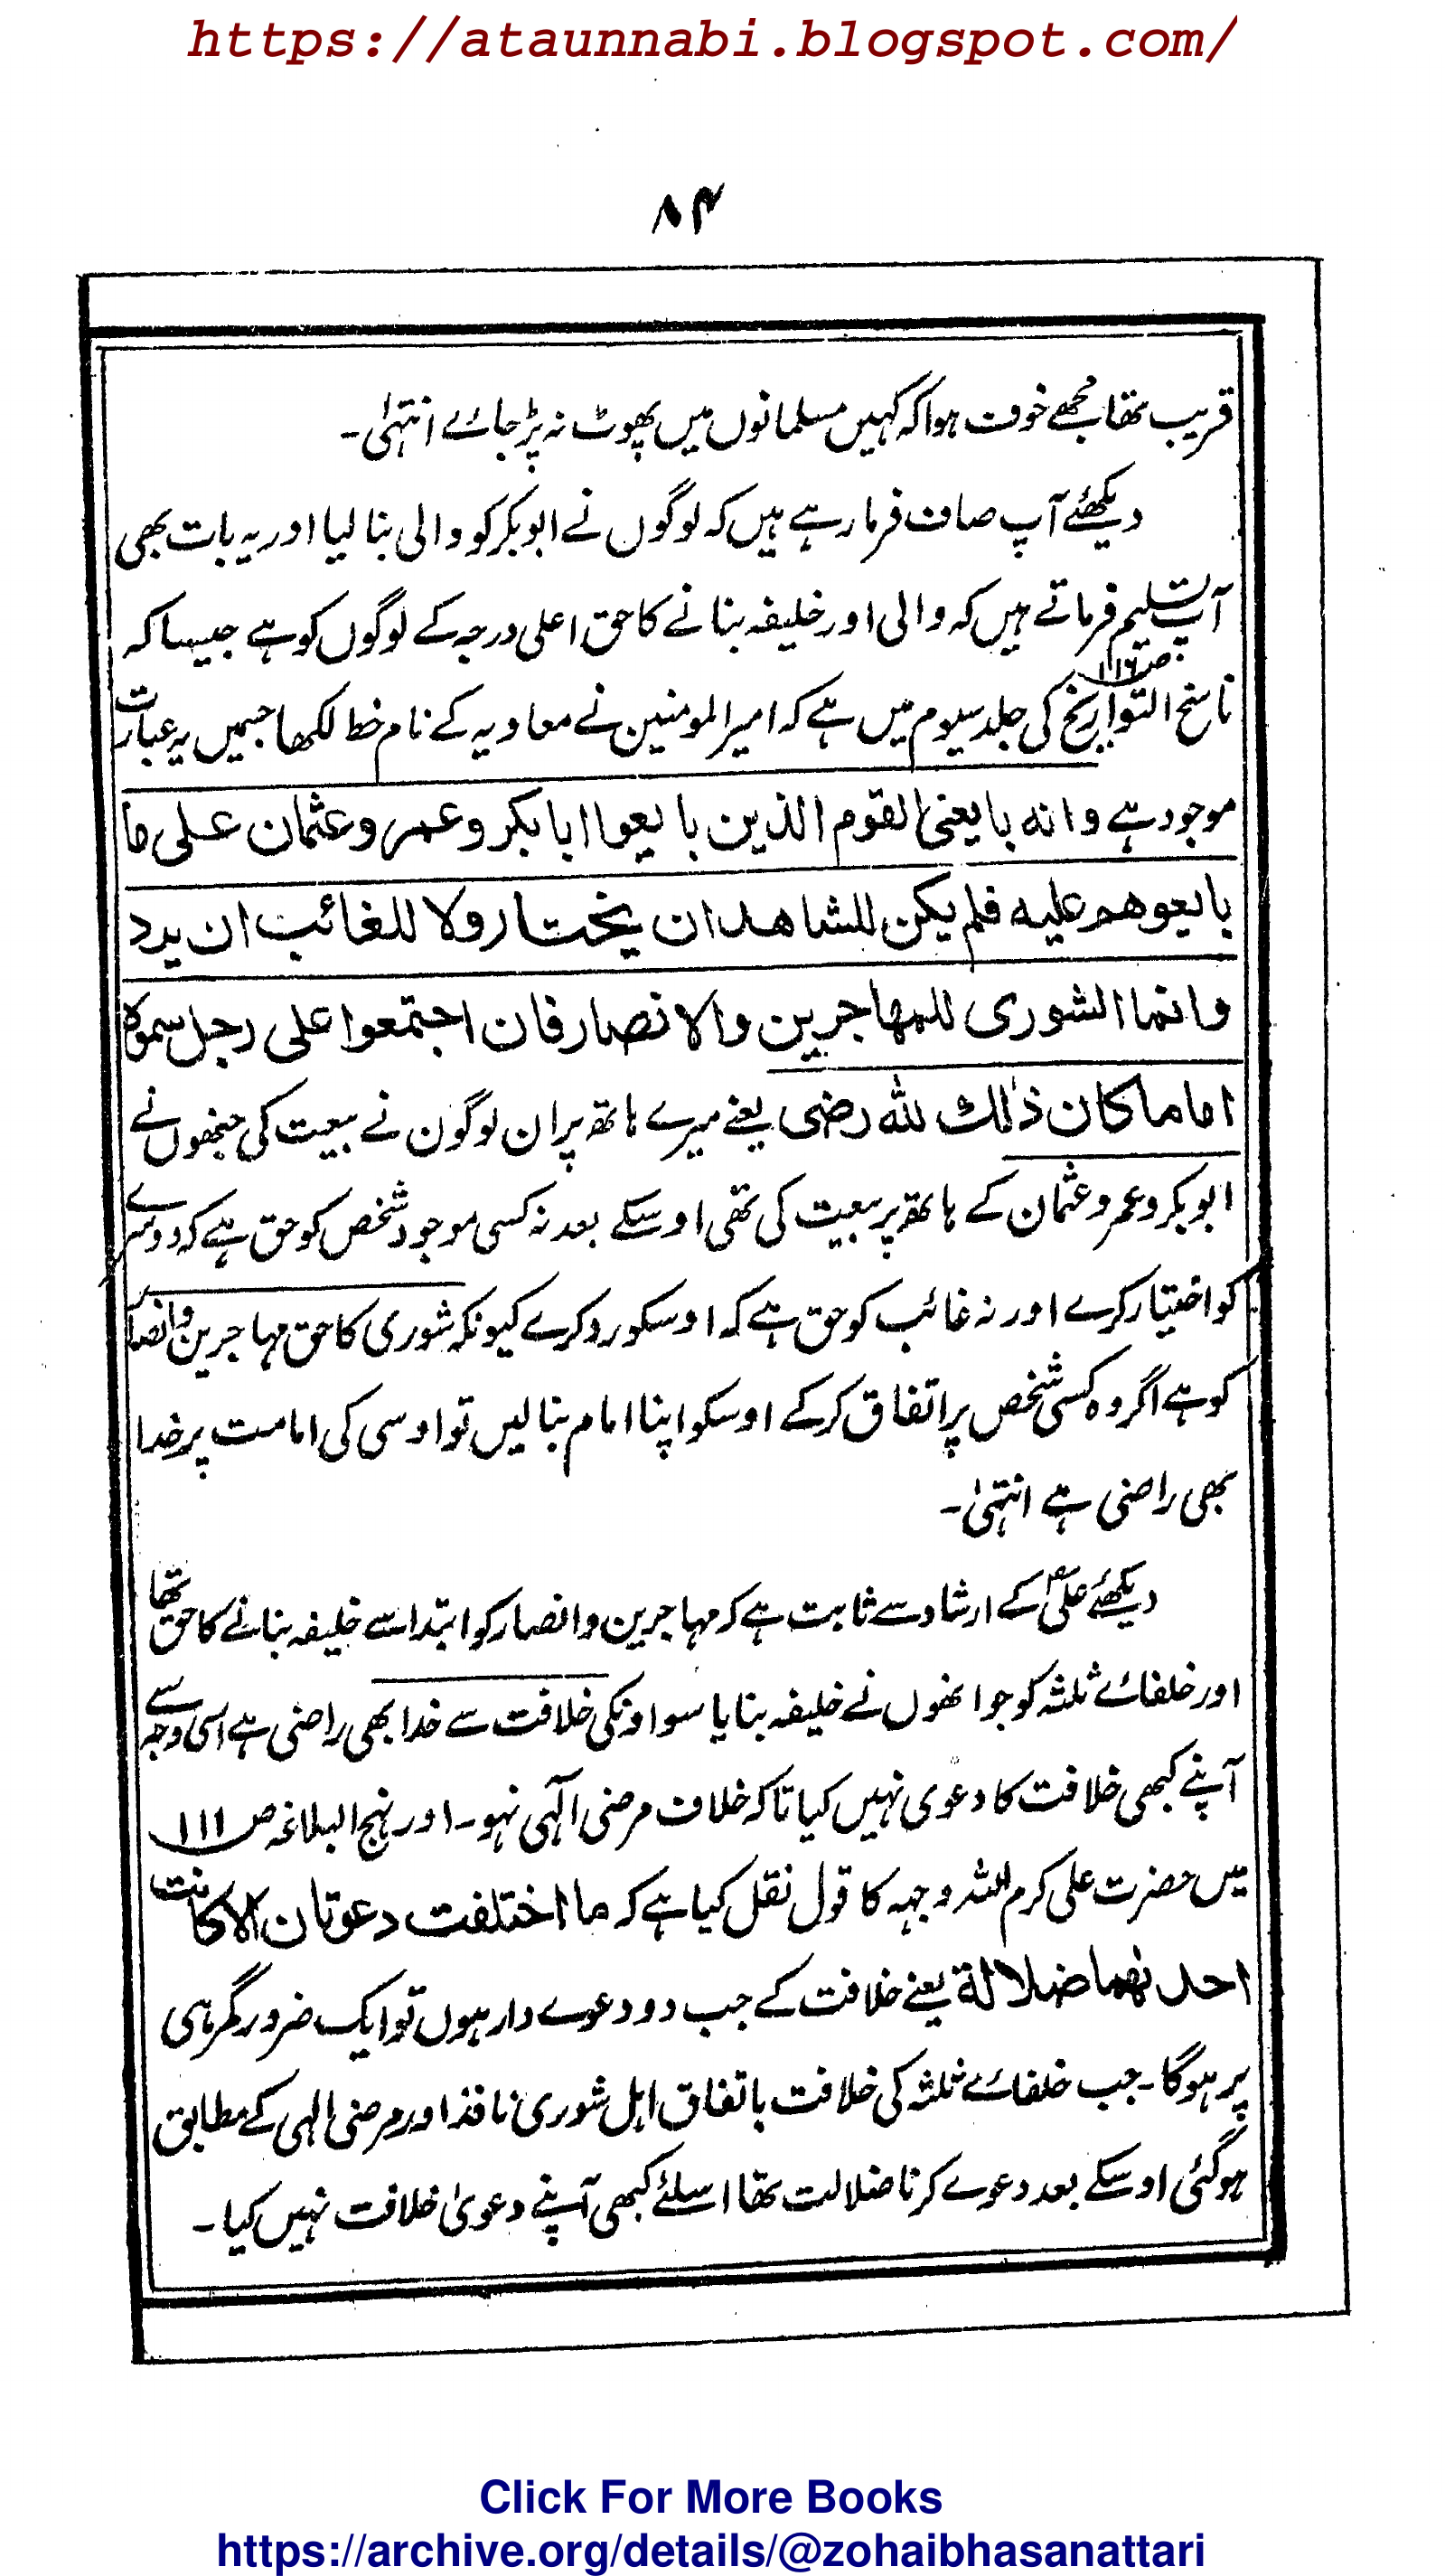 https://ataunnabi.blogspot.com/
۸۴
قریب تھا مجھے خوف ہوا کہ کہیں مسلمانوں میں پھوٹ نہ پڑجاے انتہیٰ۔
دیکھئے آپ صاف فرما رہے ہیں کہ لوگوں نے ابوبکر کو والی بنا لیا اور یہ بات بھی
آپ تسلیم فرماتے ہیں کہ والی اور خلیفہ بنانے کا حق اعلی درجہ کے لوگوں کو ہے جیسا کہ
ناسخ التواریخ ص۱۱۶ کی جلد سیوم میں ہے کہ امیر المومنین نے معاویہ کے نام خط لکھا جسمیں یہ عبارت
موجود ہے وانه بایعنی القوم الذین بایعوا ابا بکر و عمر و عثمان علی ما
بایعوهم علیه فلم یکن للشاهد ان یختار ولا للغائب ان یرد
وانما الشوری للمهاجرین والانصار فان اجتمعوا علی رجل سموه
اماما کان ذٰلك لله رضی یعنے میرے ہاتھ پر ان لوگون نے بیعت کی جنھوں نے
ابوبکر و عمر و عثمان کے ہاتھ پر بیعت کی تھی اوسکے بعد نہ کسی موجود شخص کو حق ہے کہ دوسرے
کو اختیار کرے اور نہ غائب کو حق ہے کہ اوسکو رد کرے کیونکہ شوری کا حق مہاجرین و انصار
کو ہے اگر وہ کسی شخص پر اتفاق کرکے اوسکو اپنا امام بنالیں تو اوسی کی امامت پر خدا
بھی راضی ہے انتہیٰ۔
دیکھئے علیؓ کے ارشاد سے ثابت ہے کہ مہاجرین و انصار کو ابتدا سے خلیفہ بنانے کا حق تھا
اور خلفاے ثلثہ کو جو انھوں نے خلیفہ بنایا سو اونکی خلافت سے خدا بھی راضی ہے اسی وجہ سے
آپنے کبھی خلافت کا دعوی نہیں کیا تاکہ خلاف مرضی الٰہی نہو۔ اور نہج البلاغہ ص ۱۱۱
میں حضرت علی کرم اللہ وجہہ کا قول نقل کیا ہے کہ ما اختلفت دعوتان الا کانت
احدٰ‌هما ضلالة یعنے خلافت کے جب دو دعوے دار ہوں تو ایک ضرور گمراہی
پر ہوگا۔ جب خلفاے ثلثہ کی خلافت باتفاق اہل شوری نافذ اور مرضی الہی کے مطابق
ہوگئی اوسکے بعد دعوے کرنا ضلالت تھا اسلئے کبھی آپنے دعویٰ خلافت نہیں کیا۔
Click For More Books
https://archive.org/details/@zohaibhasanattari